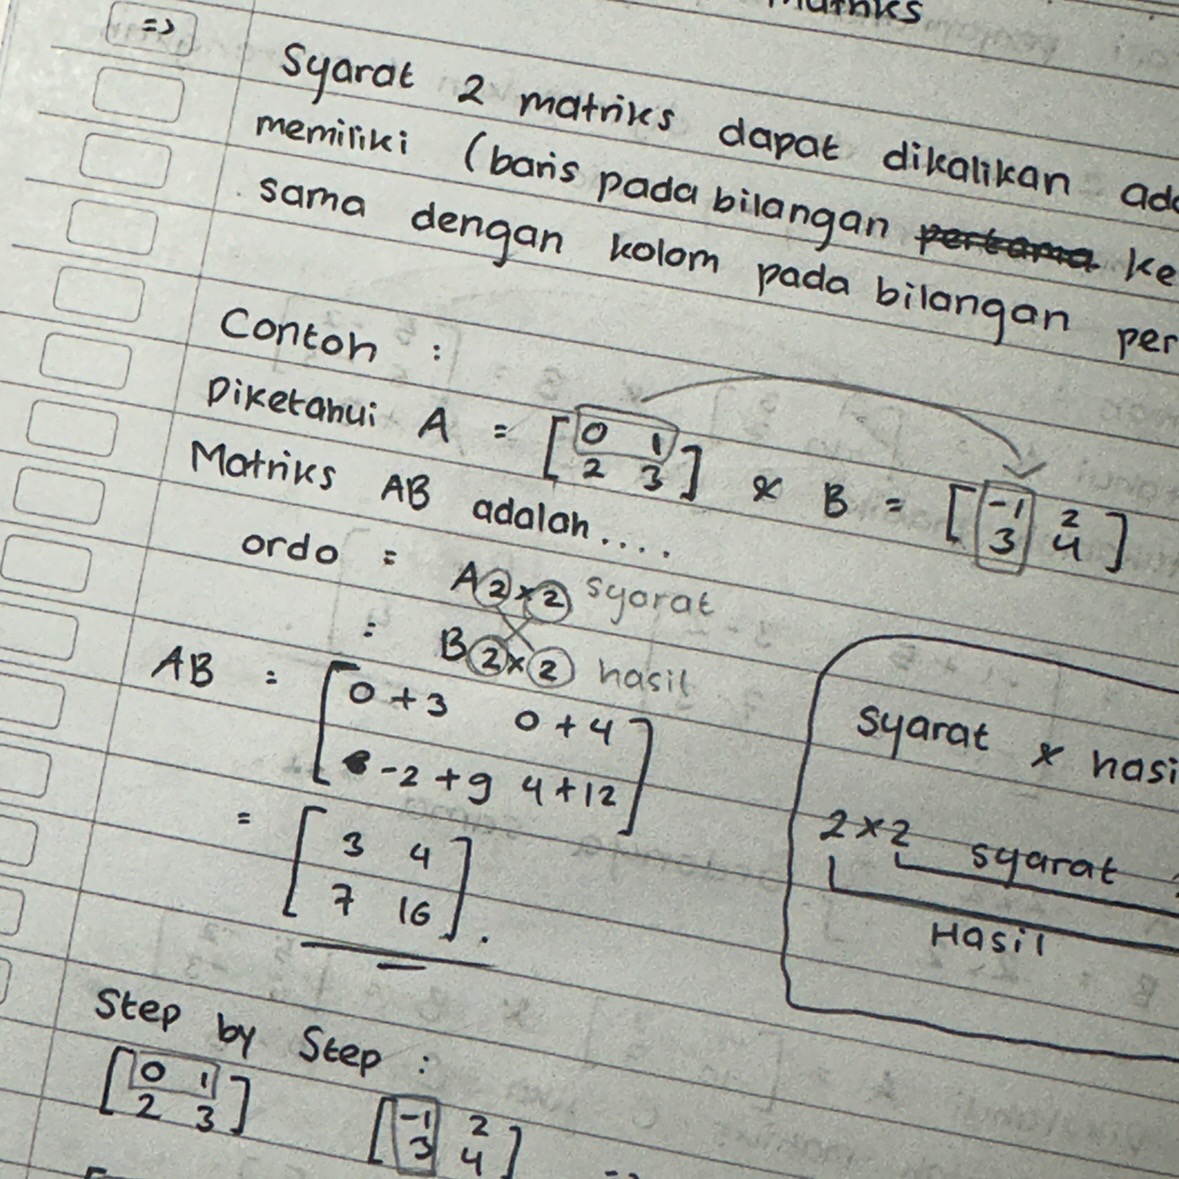 =>
Syarat 2 matriks dapat dikalikan
memiliki (baris pada bilangan pertama ke
sama dengan kolom pada bilangan per
Contoh :
Diketahui A = [0 1 & B = [-1 2
2 3] 3 4]
Matriks AB adalah....
ordo = A 2x2 syarat
= B 2x2 hasil
AB = [0+3 0+4
-2+9 4+12]
= [3 4
7 16].
Syarat x hasi
2x2 syarat
Hasil
Step by Step :
[0 1 [-1 2
2 3] 3 4]